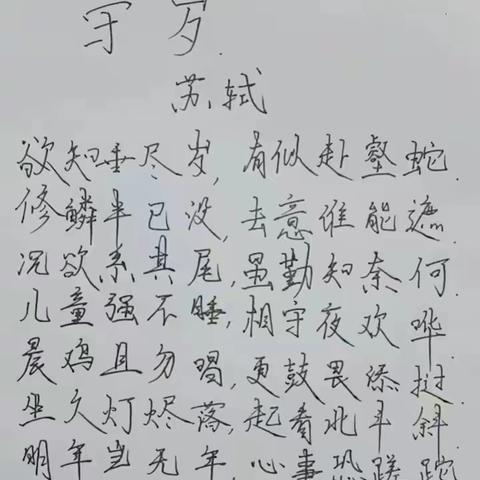 守岁
苏轼
欲知垂尽岁,有似赴壑蛇.
修鳞半已没,去意谁能遮.
况欲系其尾,虽勤知奈何.
儿童强不睡,相守夜欢哗.
晨鸡且勿唱,更鼓畏添挝.
坐久灯烬落,起看北斗斜.
明年岂无年,心事恐蹉跎